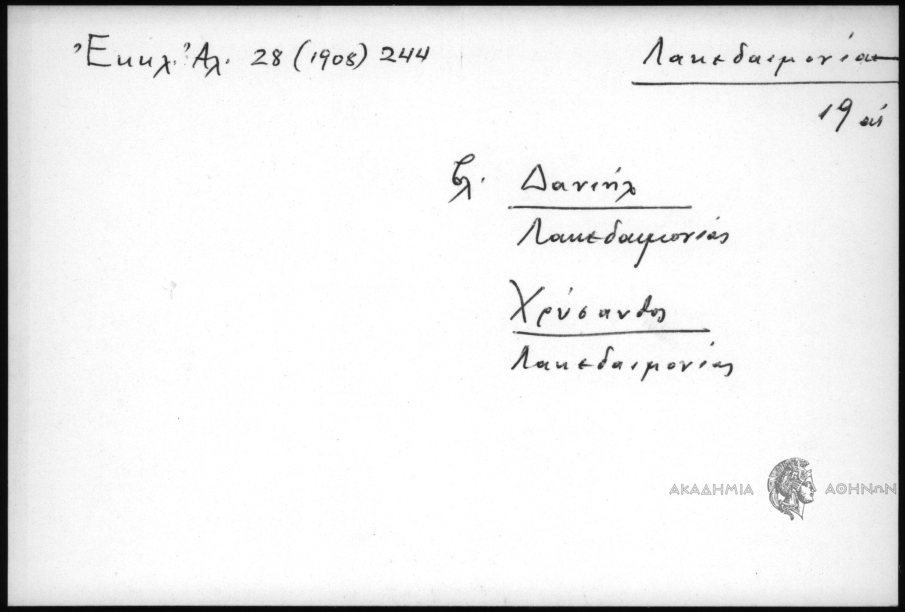 Ἐκκλ. Ἀλ. 28 (1908) 244
Λακεδαιμονίας
19 αἰ
βλ. Δανιήλ
Λακεδαιμονίας
Χρύσανθος
Λακεδαιμονίας
ΑΚΑΔΗΜΙΑ ΑΘΗΝΩΝ